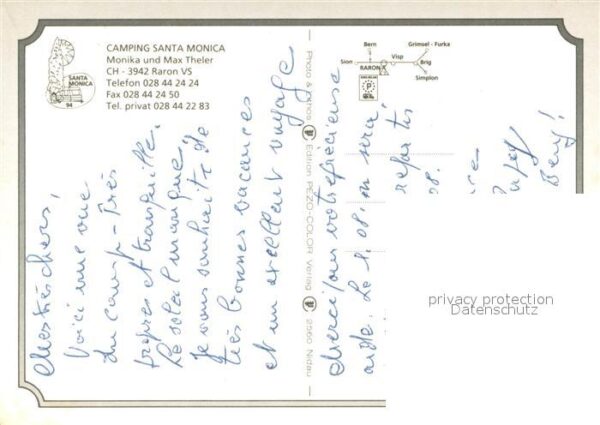 CAMPING SANTA MONICA
Monika und Max Theler
CH - 3942 Raron VS
Telefon 028 44 24 24
Fax 028 44 24 50
Tel. privat 028 44 22 83
SANTA
MONICA
94
Bern
Grimsel - Furka
Visp
Sion
RARON
Brig
Simplon
P
Mes très chers,
Voici une vue
du camp - très
propres et tranquille.
Le soleil manque,
Je vous souhaite de
très bonnes vacances
et un excellent voyage
Photo & Edition PEZO-COLOR Verlag 2560 Nidau
Merci pour votre précieuse
aide. Le 1. 08. on sera
repartis
08.
privacy protection
Datenschutz